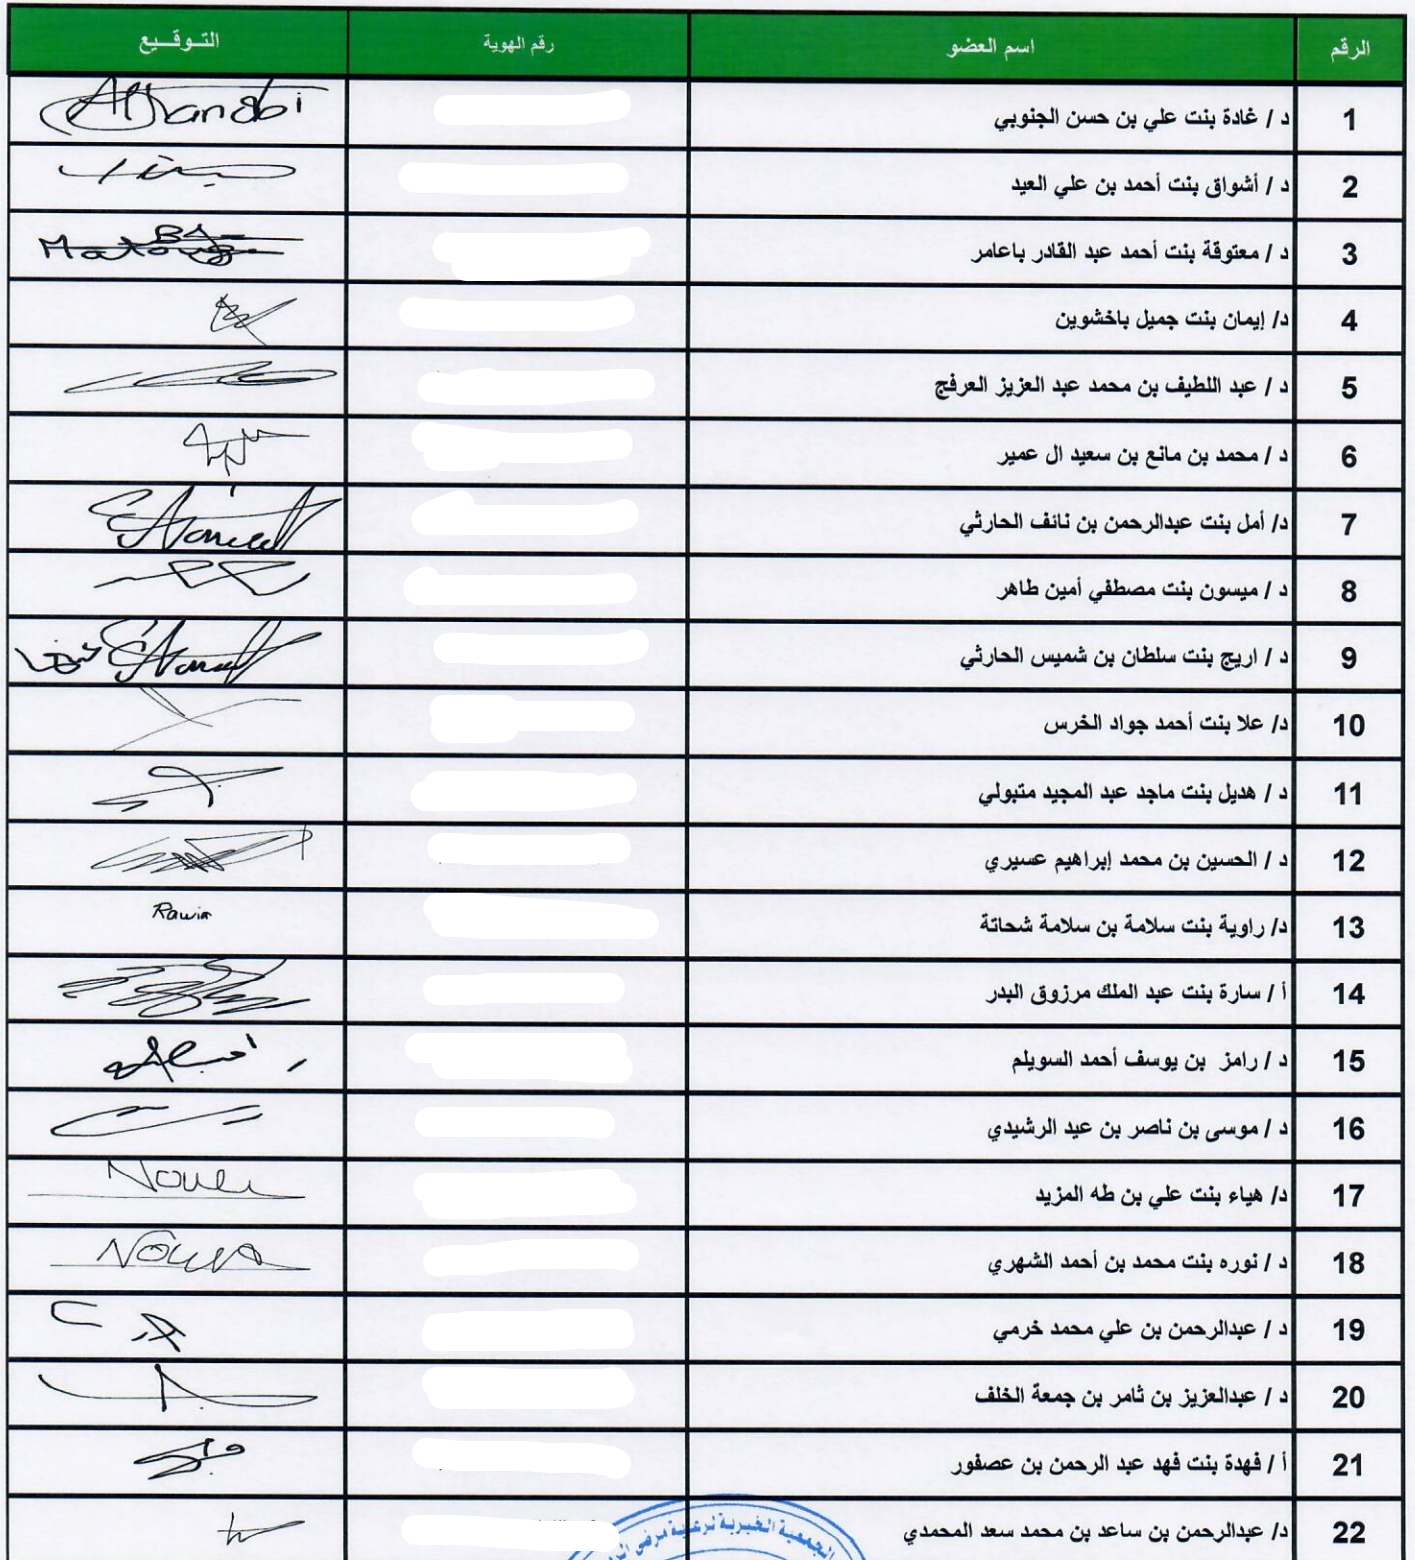 الرقم اسم العضو رقم الهوية التـوقـــيع
1 د / غادة بنت علي بن حسن الجنوبي Aljanobi
2 د / أشواق بنت أحمد بن علي العيد
3 د / معتوقة بنت أحمد عبد القادر باعامر
4 د/ إيمان بنت جميل باخشوين
5 د / عبد اللطيف بن محمد عبد العزيز العرفج
6 د / محمد بن مانع بن سعيد ال عمير
7 د/ أمل بنت عبدالرحمن بن نائف الحارثي
8 د / ميسون بنت مصطفي أمين طاهر
9 د / اريج بنت سلطان بن شميس الحارثي
10 د/ علا بنت أحمد جواد الخرس
11 د / هديل بنت ماجد عبد المجيد متبولي
12 د / الحسين بن محمد إبراهيم عسيري
13 د/ راوية بنت سلامة بن سلامة شحاتة Rawia
14 أ / سارة بنت عبد الملك مرزوق البدر
15 د / رامز بن يوسف أحمد السويلم
16 د / موسى بن ناصر بن عيد الرشيدي
17 د/ هياء بنت علي بن طه المزيد
18 د / نوره بنت محمد بن أحمد الشهري Noura
19 د / عبدالرحمن بن علي محمد خرمي
20 د / عبدالعزيز بن ثامر بن جمعة الخلف
21 أ / فهدة بنت فهد عبد الرحمن بن عصفور
22 د/ عبدالرحمن بن ساعد بن محمد سعد المحمدي
الجمعية الخيرية لرعاية مرضى